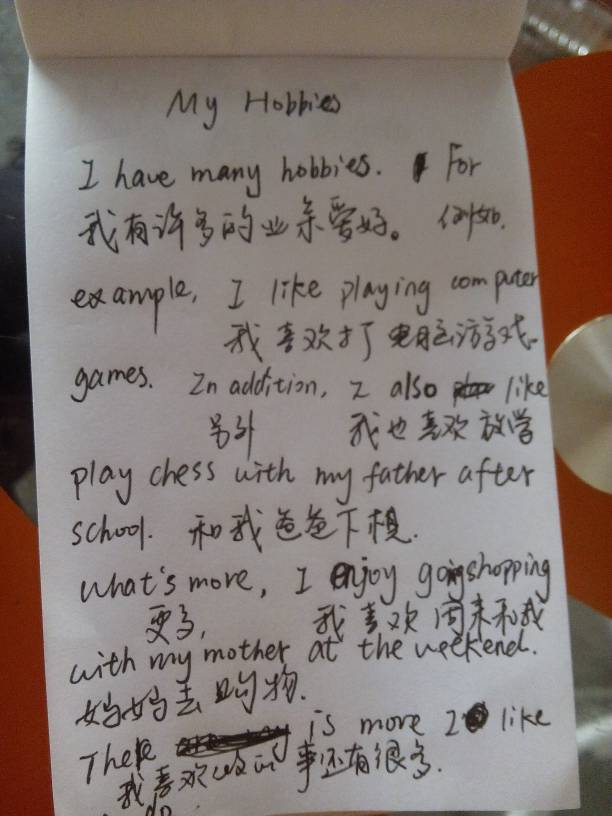 My Hobbies
I have many hobbies. For
我有许多的业余爱好。 例如.
example, I like playing computer
我喜欢打电脑游戏.
games. In addition, I also like
另外 我也喜欢放学
play chess with my father after
school. 和我爸爸下棋.
what's more, I enjoy going shopping
更多, 我喜欢周末和我
with my mother at the weekend.
妈妈去购物.
There is more I like
我喜欢做的事还有很多.
do